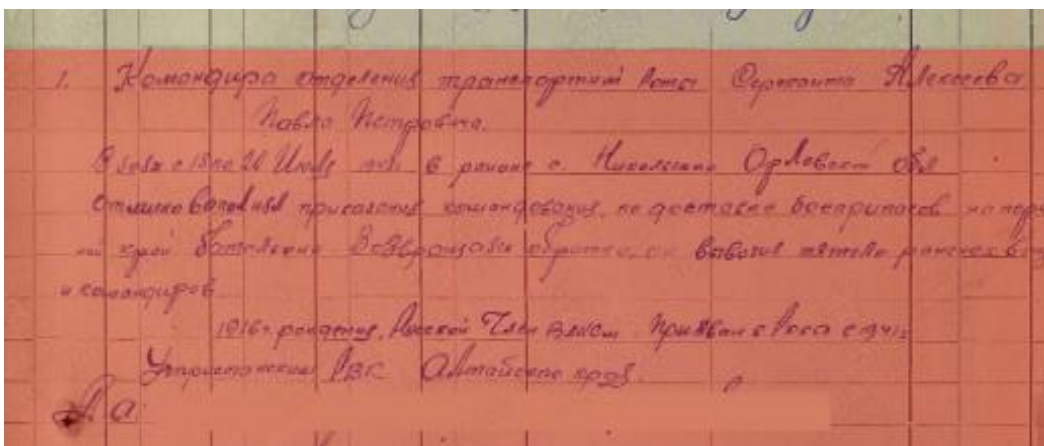 1. Командира отделения транспортной Роты Сержанта Алексеева
Павла Петровича.
В боях с 18 по 26 Июля в районе с. Орловской обл
Отлично выполнял приказания командования, по доставке боеприпасов на перед
ний край батальона. Возвращаясь обратно, он вывозил тяжело раненых
и командиров
1916 г. рождения, Русский Член ВЛКСМ. Призван в с 1941 г
РВК Алтайского края.